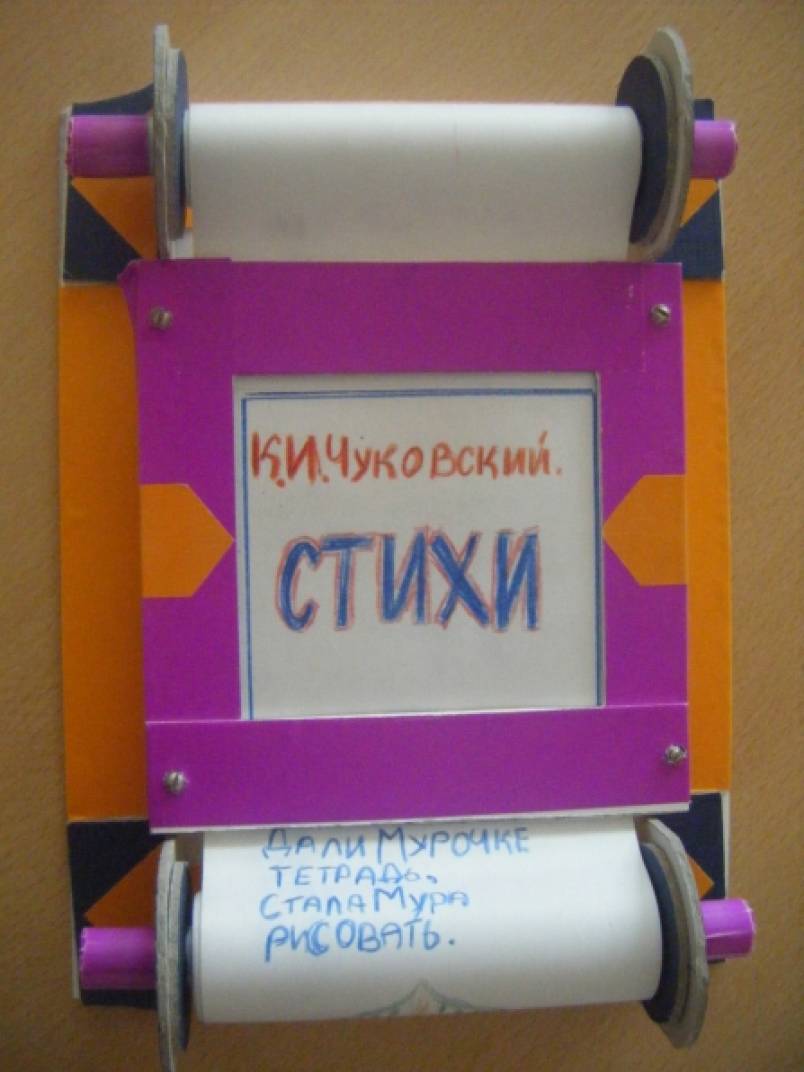 К.И.Чуковский.
СТИХИ
ДАЛИ МУРОЧКЕ
ТЕТРАДЬ,
СТАЛА МУРА
РИСОВАТЬ.